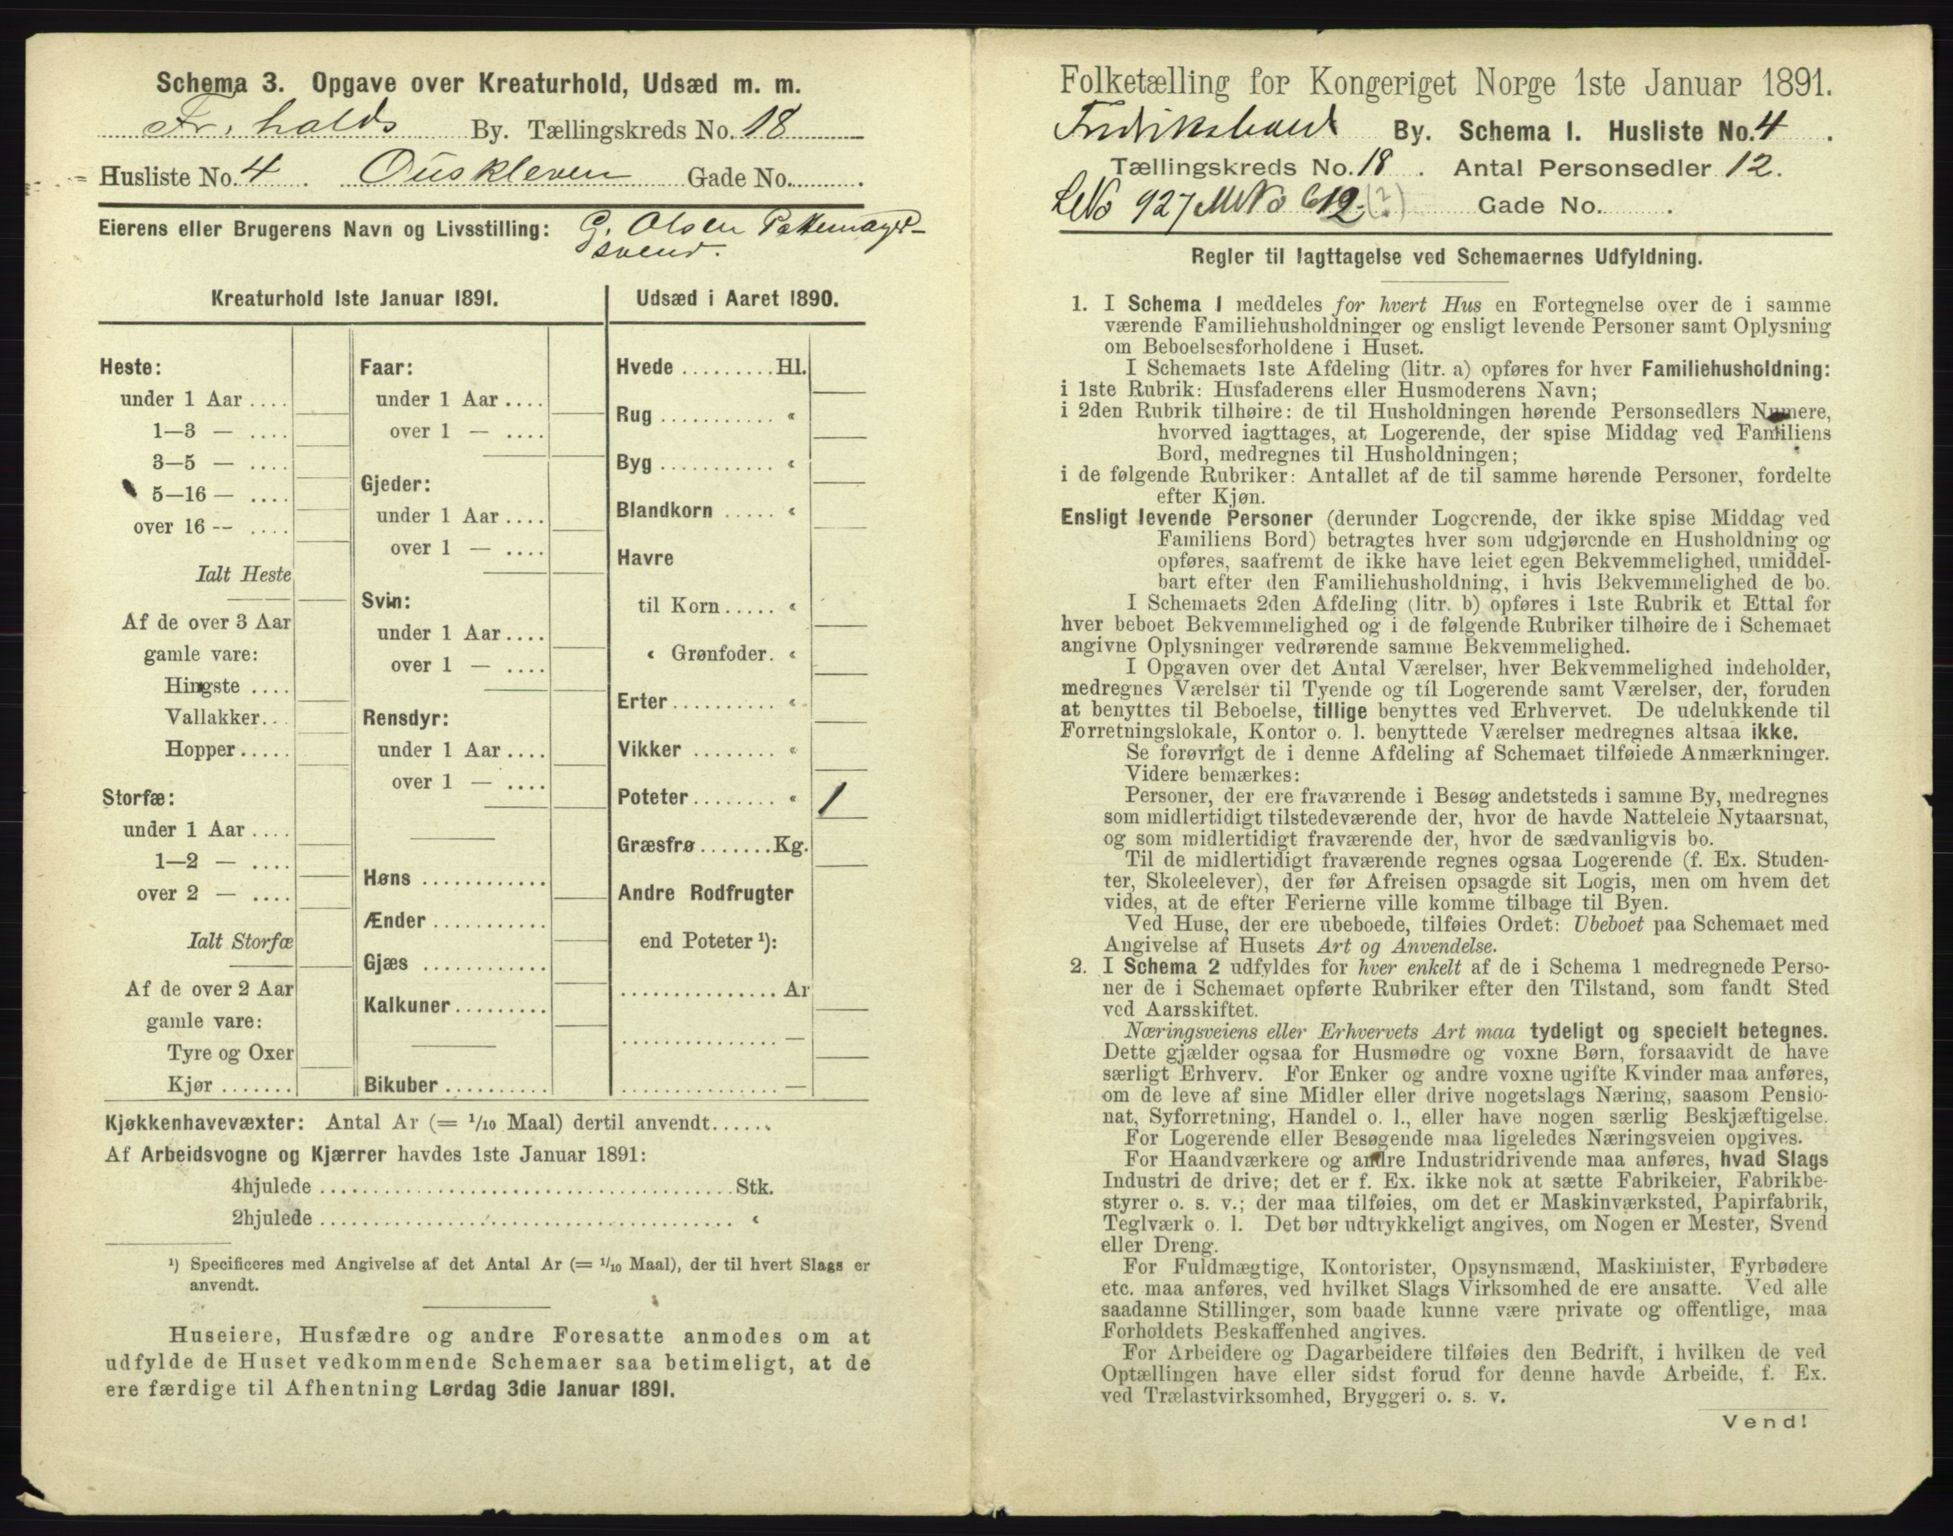 Schema 3. Opgave over Kreaturhold, Udsæd m. m.
Fr.halds By. Tællingskreds No. 18
Husliste No. 4. Ouskleven Gade No. .
Eierens eller Brugerens Navn og Livsstilling: G. Olsen
svend.
Kreaturhold 1ste Januar 1891.
Heste:
under 1 Aar ....
1—3 — ....
3—5 — ....
5—16 — ....
over 16 — ....
Ialt Heste
Af de over 3 Aar
gamle vare:
Hingste ....
Vallakker...
Hopper.....
Storfæ:
under 1 Aar ....
1—2 — ....
over 2 — ....
Ialt Storfæ
Af de over 2 Aar
gamle vare:
Tyre og Oxer
Kjør .......
Faar:
under 1 Aar ....
over 1 — ....
Gjeder:
under 1 Aar ....
over 1 — ....
Svin:
under 1 Aar....
over 1 — ....
Rensdyr:
under 1 Aar ....
over 1 — ....
Høns ............
Ænder ...........
Gjæs ............
Kalkuner.........
Bikuber ..........
Udsæd i Aaret 1890.
Hvede .........Hl.
Rug ........... «
Byg ........... «
Blandkorn ..... «
Havre
til Korn ..... «
« Grønfoder. «
Erter.......... «
Vikker ........ «
Poteter ........ « 1
Græsfrø .......Kg.
Andre Rodfrugter
end Poteter ¹):
............... Ar
............... —
............... —
Kjøkkenhavevæxter: Antal Ar (= 1/10 Maal) dertil anvendt......
Af Arbeidsvogne og Kjærrer havdes 1ste Januar 1891:
4hjulede ........................................Stk.
2hjulede ........................................ «
¹) Specificeres med Angivelse af det Antal Ar (= 1/10 Maal), der til hvert Slags er
anvendt.
Huseiere, Husfædre og andre Foresatte anmodes om at
udfylde de Huset vedkommende Schemaer saa betimeligt, at de
ere færdige til Afhentning Lørdag 3die Januar 1891.
Folketælling for Kongeriget Norge 1ste Januar 1891.
Fredrikshald By. Schema I. Husliste No. 4.
Tællingskreds No. 18. Antal Personsedler 12.
LNo 927 MNo 612 (?) Gade No. .
Regler til Iagttagelse ved Schemaernes Udfyldning.
1. I Schema 1 meddeles for hvert Hus en Fortegnelse over de i samme
værende Familiehusholdninger og ensligt levende Personer samt Oplysning
om Beboelsesforholdene i Huset.
I Schemaets 1ste Afdeling (litr. a) opføres for hver Familiehusholdning:
i 1ste Rubrik: Husfaderens eller Husmoderens Navn;
i 2den Rubrik tilhøire: de til Husholdningen hørende Personsedlers Numere,
hvorved iagttages, at Logerende, der spise Middag ved Familiens
Bord, medregnes til Husholdningen;
i de følgende Rubriker: Antallet af de til samme hørende Personer, fordelte
efter Kjøn.
Ensligt levende Personer (derunder Logerende, der ikke spise Middag ved
Familiens Bord) betragtes hver som udgjørende en Husholdning og
opføres, saafremt de ikke have leiet egen Bekvemmelighed, umiddel-
bart efter den Familiehusholdning, i hvis Bekvemmelighed de bo.
I Schemaets 2den Afdeling (litr. b) opføres i 1ste Rubrik et Ettal for
hver beboet Bekvemmelighed og i de følgende Rubriker tilhøire de i Schemaet
angivne Oplysninger vedrørende samme Bekvemmelighed.
I Opgaven over det Antal Værelser, hver Bekvemmelighed indeholder,
medregnes Værelser til Tyende og til Logerende samt Værelser, der, foruden
at benyttes til Beboelse, tillige benyttes ved Erhvervet. De udelukkende til
Forretningslokale, Kontor o. l. benyttede Værelser medregnes altsaa ikke.
Se forøvrigt de i denne Afdeling af Schemaet tilføiede Anmærkninger.
Videre bemærkes:
Personer, der ere fraværende i Besøg andetsteds i samme By, medregnes
som midlertidigt tilstedeværende der, hvor de havde Natteleie Nytaarsnat,
og som midlertidigt fraværende der, hvor de sædvanligvis bo.
Til de midlertidigt fraværende regnes ogsaa Logerende (f. Ex. Studen-
ter, Skoleelever), der før Afreisen opsagde sit Logis, men om hvem det
vides, at de efter Ferierne ville komme tilbage til Byen.
Ved Huse, der ere ubeboede, tilføies Ordet: Ubeboet paa Schemaet med
Angivelse af Husets Art og Anvendelse.
2. I Schema 2 udfyldes for hver enkelt af de i Schema 1 medregnede Perso-
ner de i Schemaet opførte Rubriker efter den Tilstand, som fandt Sted
ved Aarsskiftet.
Næringsveiens eller Erhvervets Art maa tydeligt og specielt betegnes.
Dette gjælder ogsaa for Husmødre og voxne Børn, forsaavidt de have
særligt Erhverv. For Enker og andre voxne ugifte Kvinder maa anføres,
om de leve af sine Midler eller drive nogetslags Næring, saasom Pensio-
nat, Syforretning, Handel o. l., eller have nogen særlig Beskjæftigelse.
For Logerende eller Besøgende maa ligeledes Næringsveien opgives.
For Haandværkere og andre Industridrivende maa anføres, hvad Slags
Industri de drive; det er f. Ex. ikke nok at sætte Fabrikeier, Fabrikbe-
styrer o. s. v.; der maa tilføies, om det er Maskinværksted, Papirfabrik,
Teglværk o. l. Det bør udtrykkeligt angives, om Nogen er Mester, Svend
eller Dreng.
For Fuldmægtige, Kontorister, Opsynsmænd, Maskinister, Fyrbødere
etc. maa anføres, ved hvilket Slags Virksomhed de ere ansatte. Ved alle
saadanne Stillinger, som baade kunne være private og offentlige, maa
Forholdets Beskaffenhed angives.
For Arbeidere og Dagarbeidere tilføies den Bedrift, i hvilken de ved
Optællingen have eller sidst forud for denne havde Arbeide, f. Ex.
ved Trælastvirksomhed, Bryggeri o. s. v.
Vend!